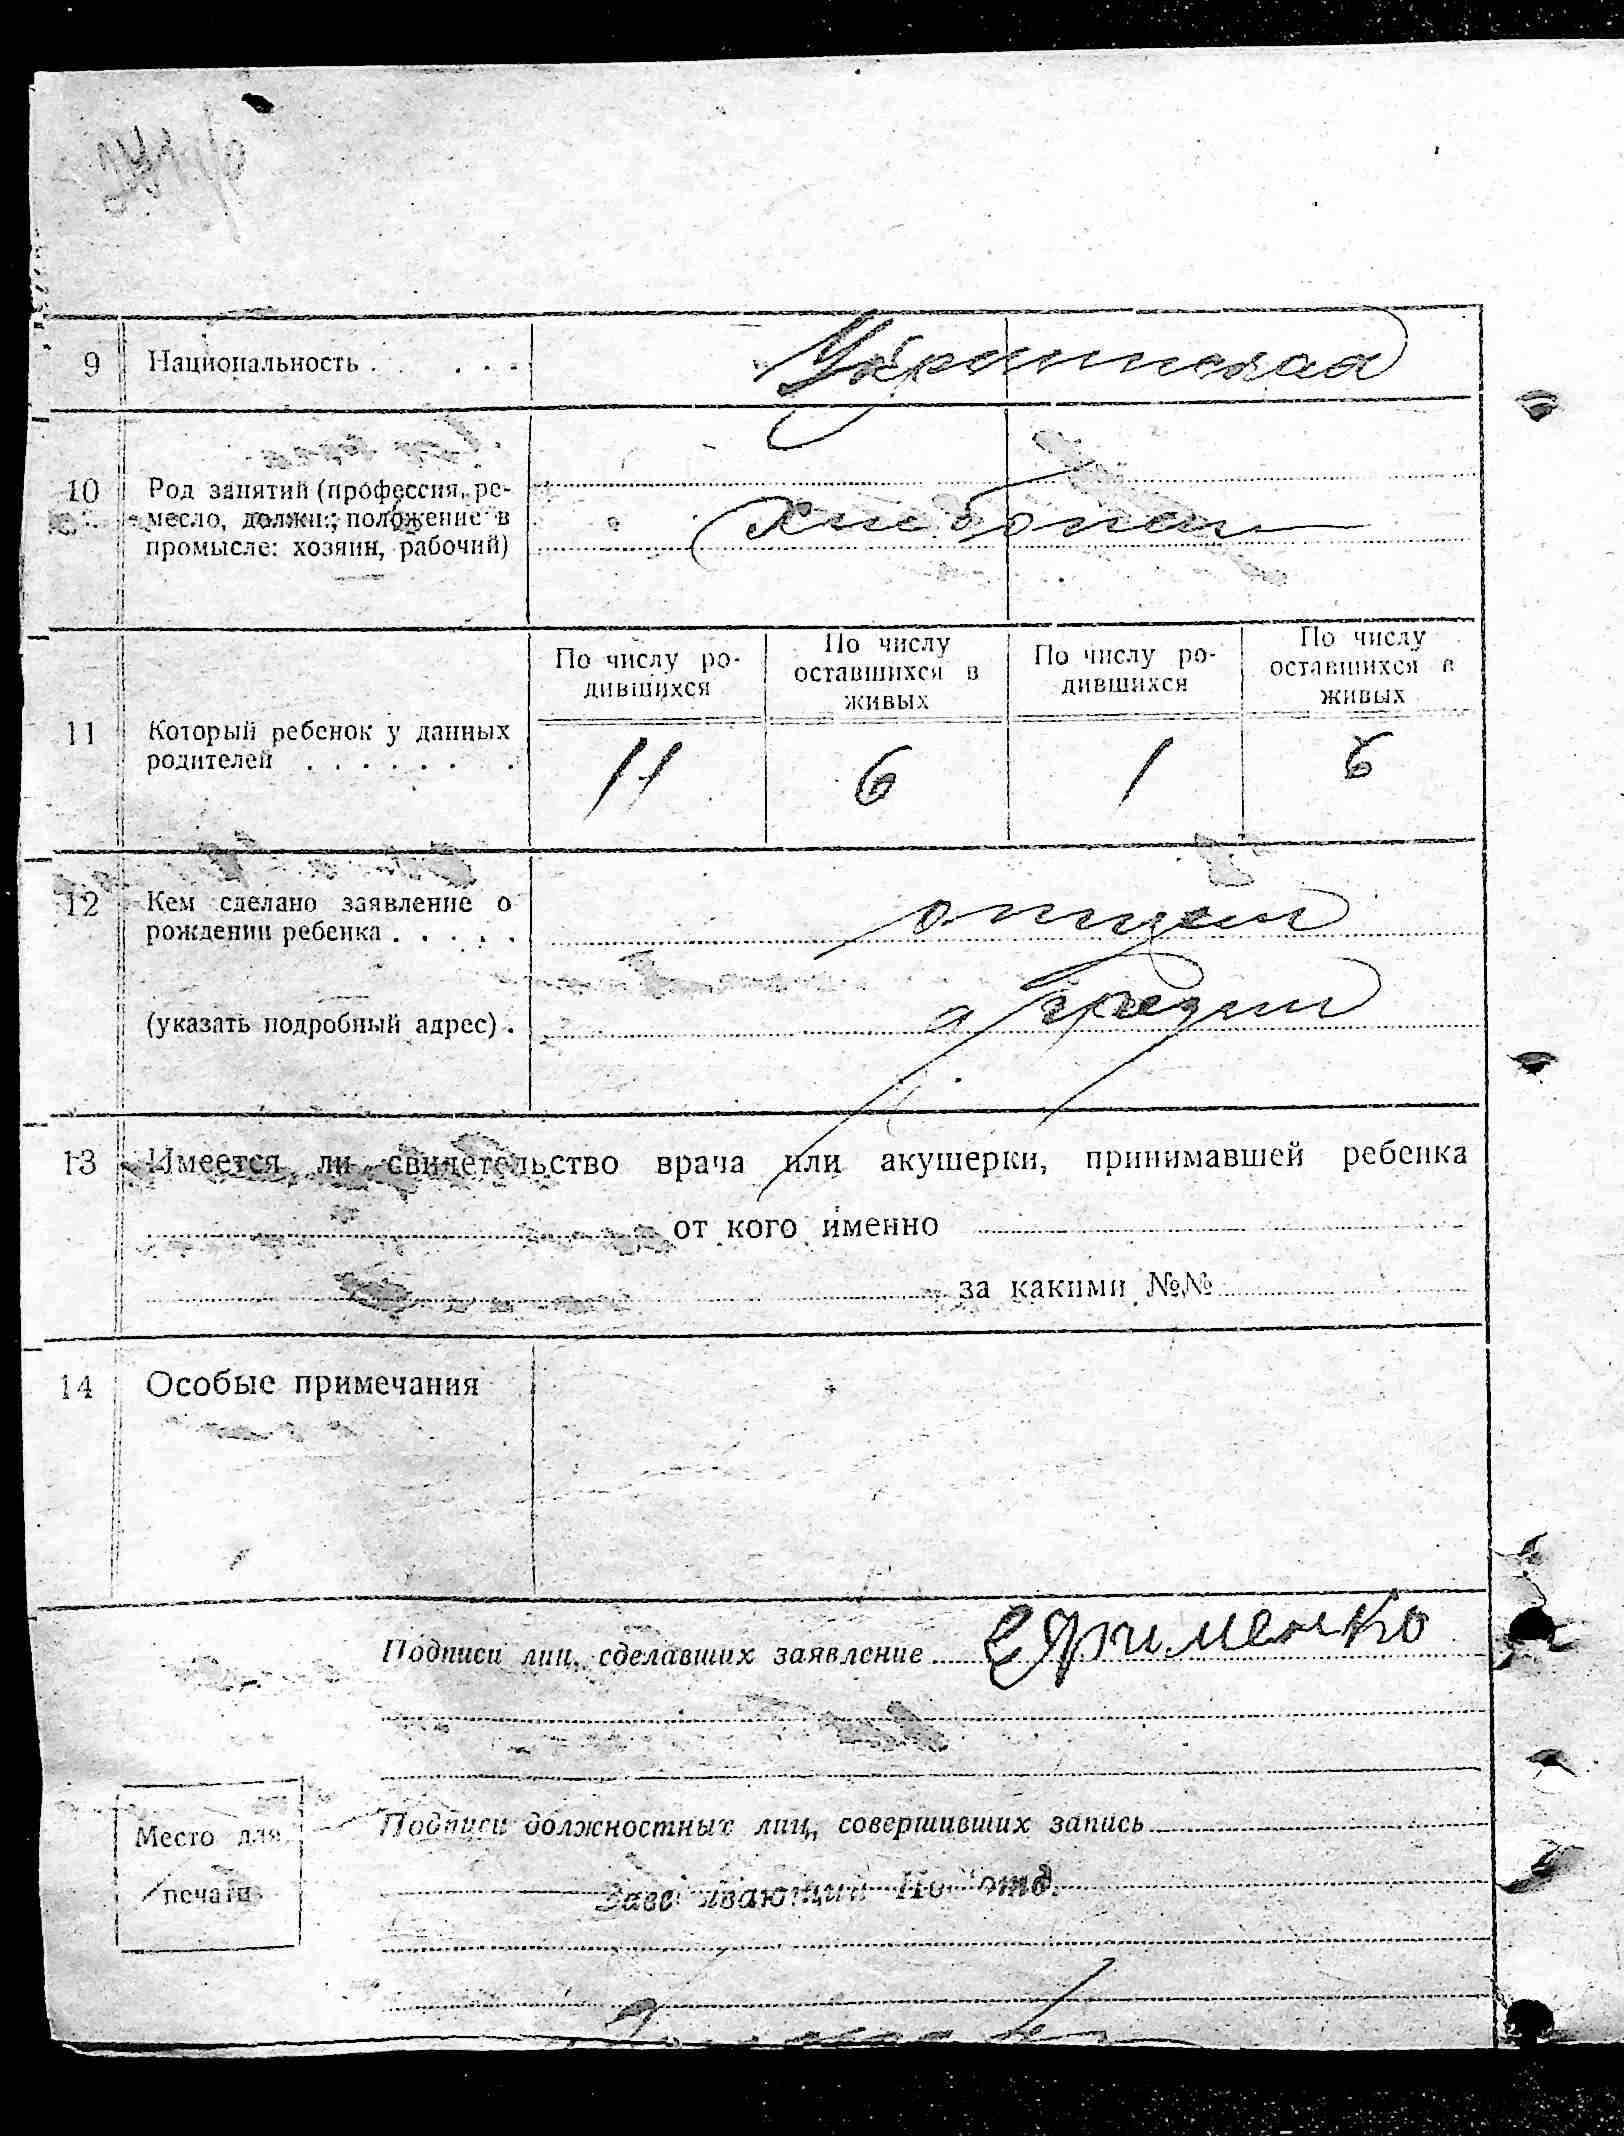 9 Национальность . . . . .
Украинская
10 Род занятий (профессия, ре-
месло, должн.; положение в
промысле: хозяин, рабочий)
Хлебопаш
По числу ро-
дившихся
По числу
оставшихся в
живых
По числу ро-
дившихся
По числу
оставшихся в
живых
11 Который ребенок у данных
родителей . . . . . . .
11 6 1 6
12 Кем сделано заявление о
рождении ребенка . . . . .
отцем
(указать подробный адрес) .
13 Имеется ли свидетельство врача или акушерки, принимавшей ребенка
от кого именно
за какими №№
14 Особые примечания
Подписи лиц, сделавших заявление Ефименко
Подписи должностных лиц, совершивших запись
Место для
печати